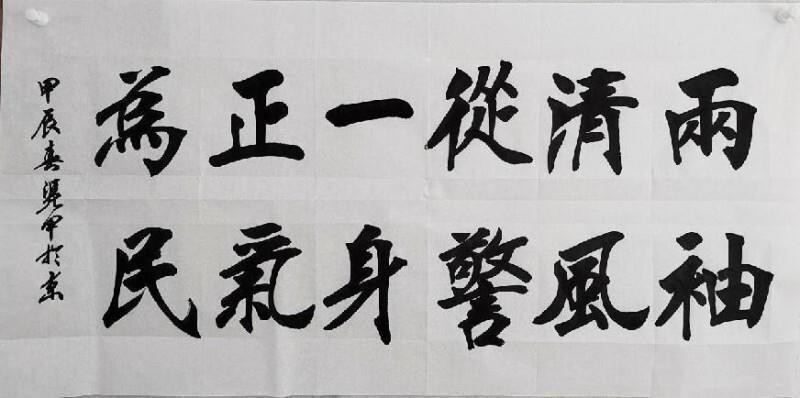 兩袖
清風
從警
一身
正氣
為民
甲辰春梁甲於京